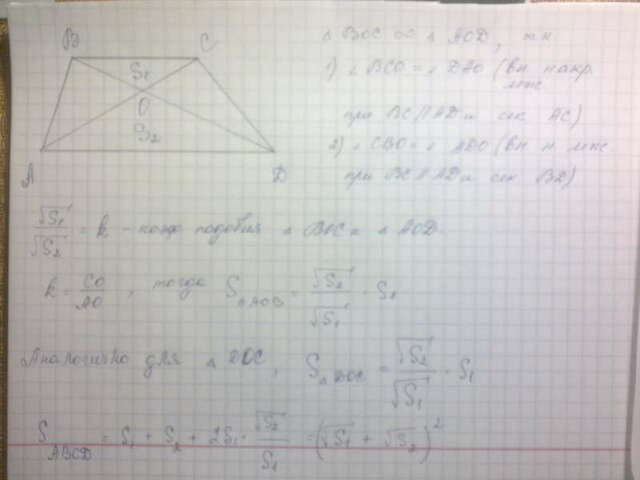 B C
S₁
O
S₂
A D
Δ BOC ∞ Δ AOD, т.н.
1) ∠ BCO = ∠ DAO (вн. накр. леж
при BC || AD и сек AC)
2) ∠ CBO = ∠ ADO (вн н леж
при BC || AD и сек BD)
√S₁ / √S₂ = k - коэф подобия Δ BOC и Δ AOD.
k = CO / AO, тогда S ΔAOB = √S₂ / √S₁ · S₁
Аналогично для Δ DOC, S ΔDOC = √S₂ / √S₁ · S₁
S ABCD = S₁ + S₂ + 2S₁ · √S₂ / S₁ = (√S₁ + √S₂)²